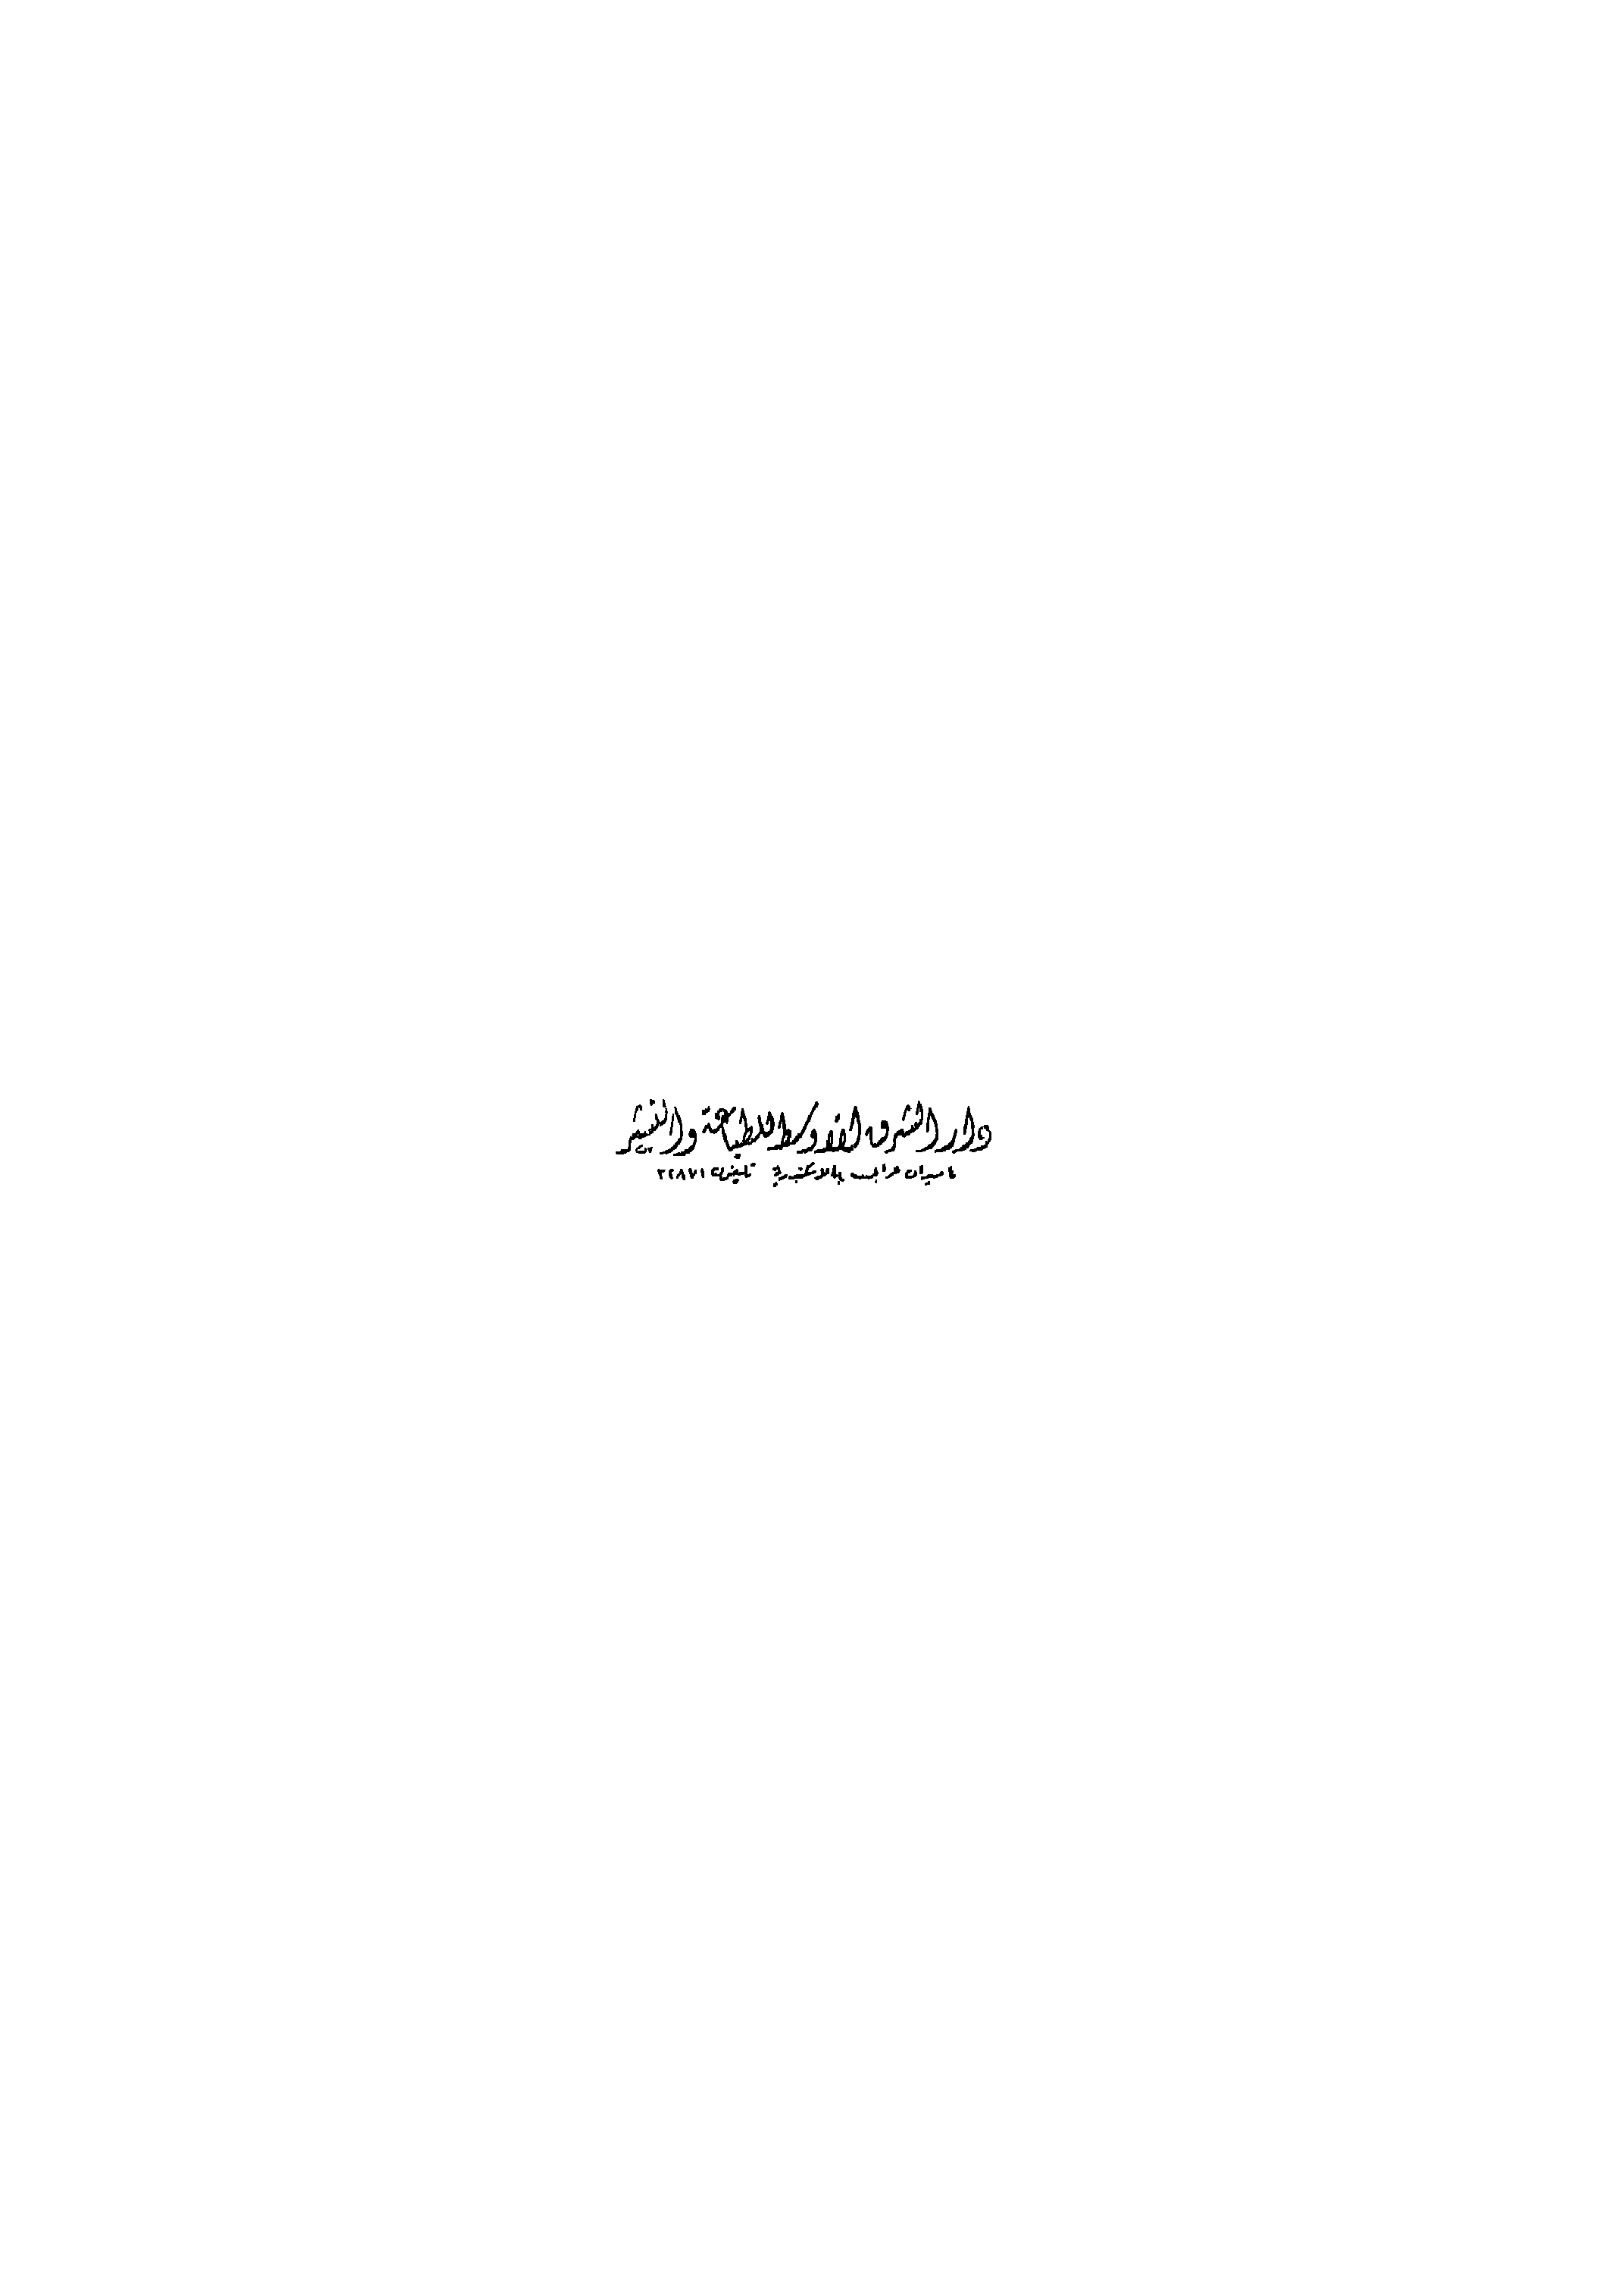 دار الشرق الأوسط للطباعة والنشر
ميدان عرابى بالاسكندرية تليفون ٢٢٨٧١